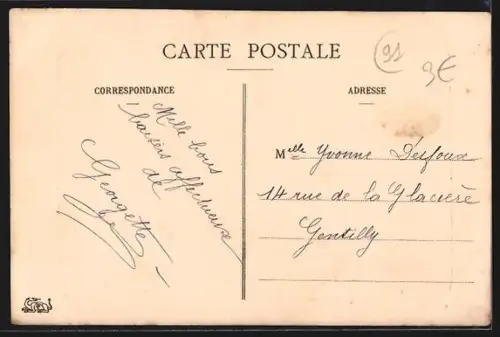 CARTE POSTALE
91
9€
CORRESPONDANCE
Mille bons
baisers affectueux
de
Georgette
ADRESSE
Mlle Yvonne Desfoux
14 rue de la Glacière
Gentilly